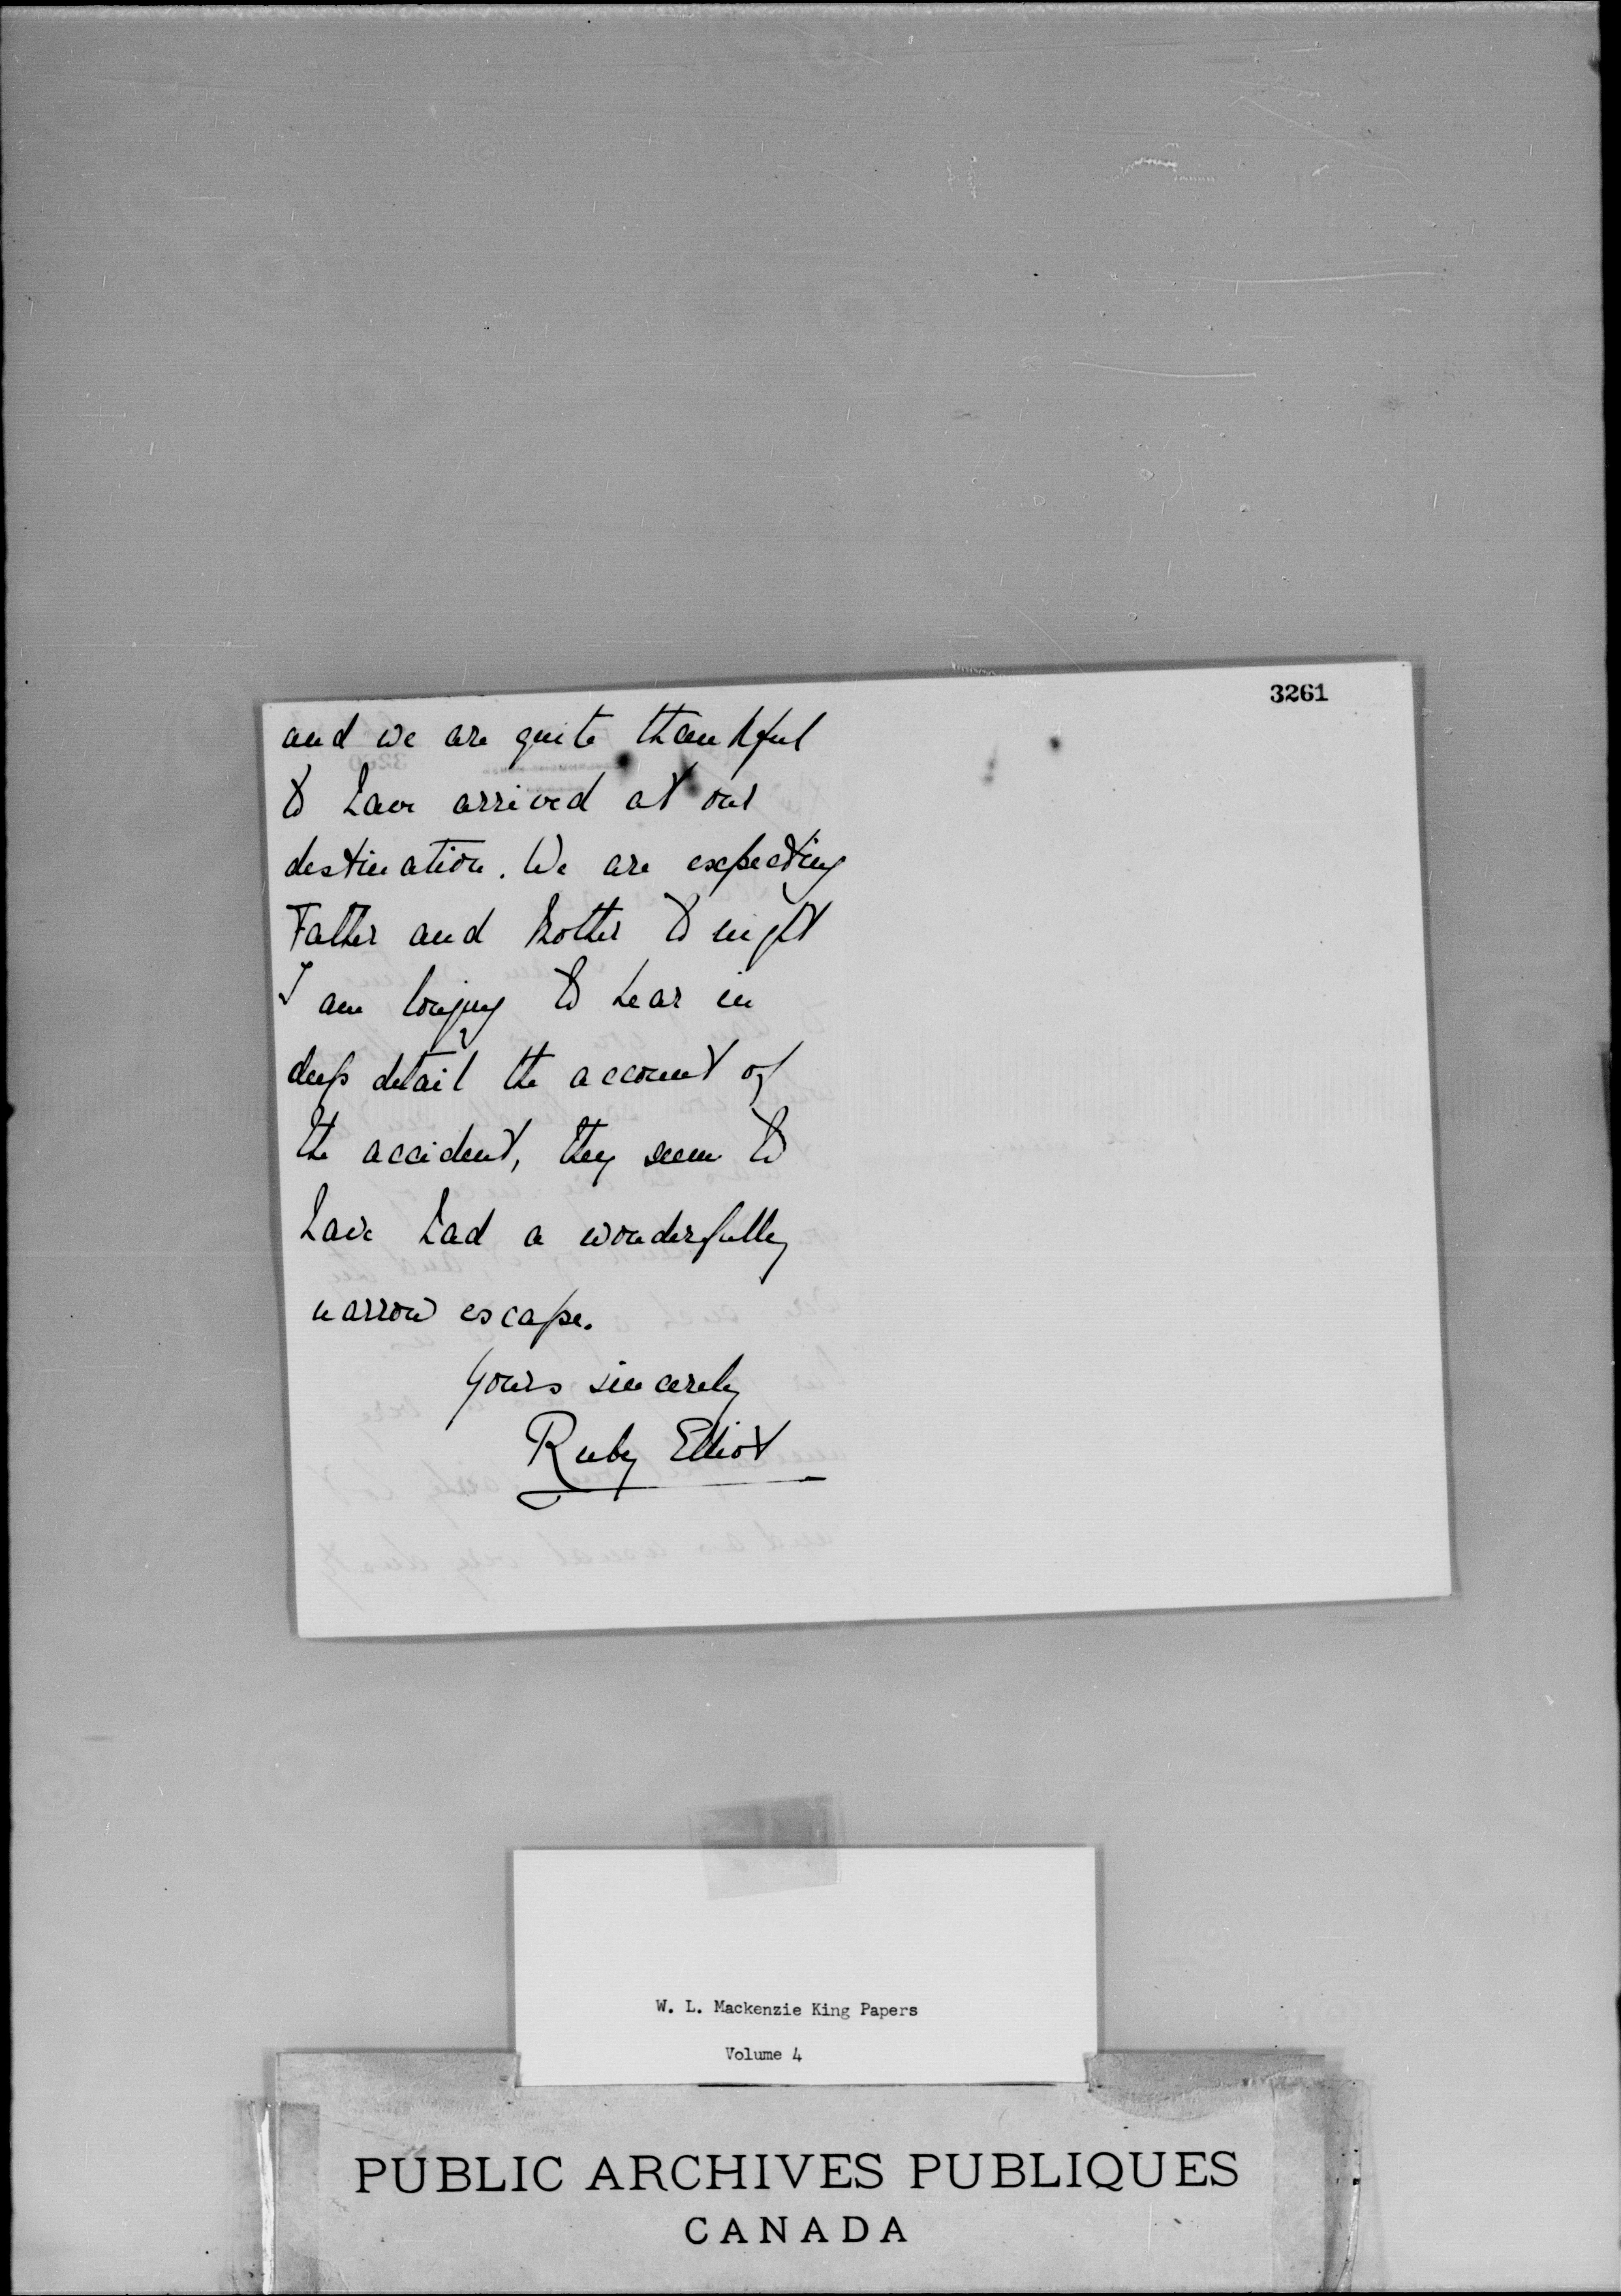 3261
and we are quite thankful
to have arrived at our
destination. We are expecting
Father and Mother to night
I am longing to hear in
deep detail the account of
the accident, they seem to
have had a wonderfully
narrow escape.
Yours sincerely
Ruby Elliot
W. L. Mackenzie King Papers
Volume 4
PUBLIC ARCHIVES PUBLIQUES
CANADA